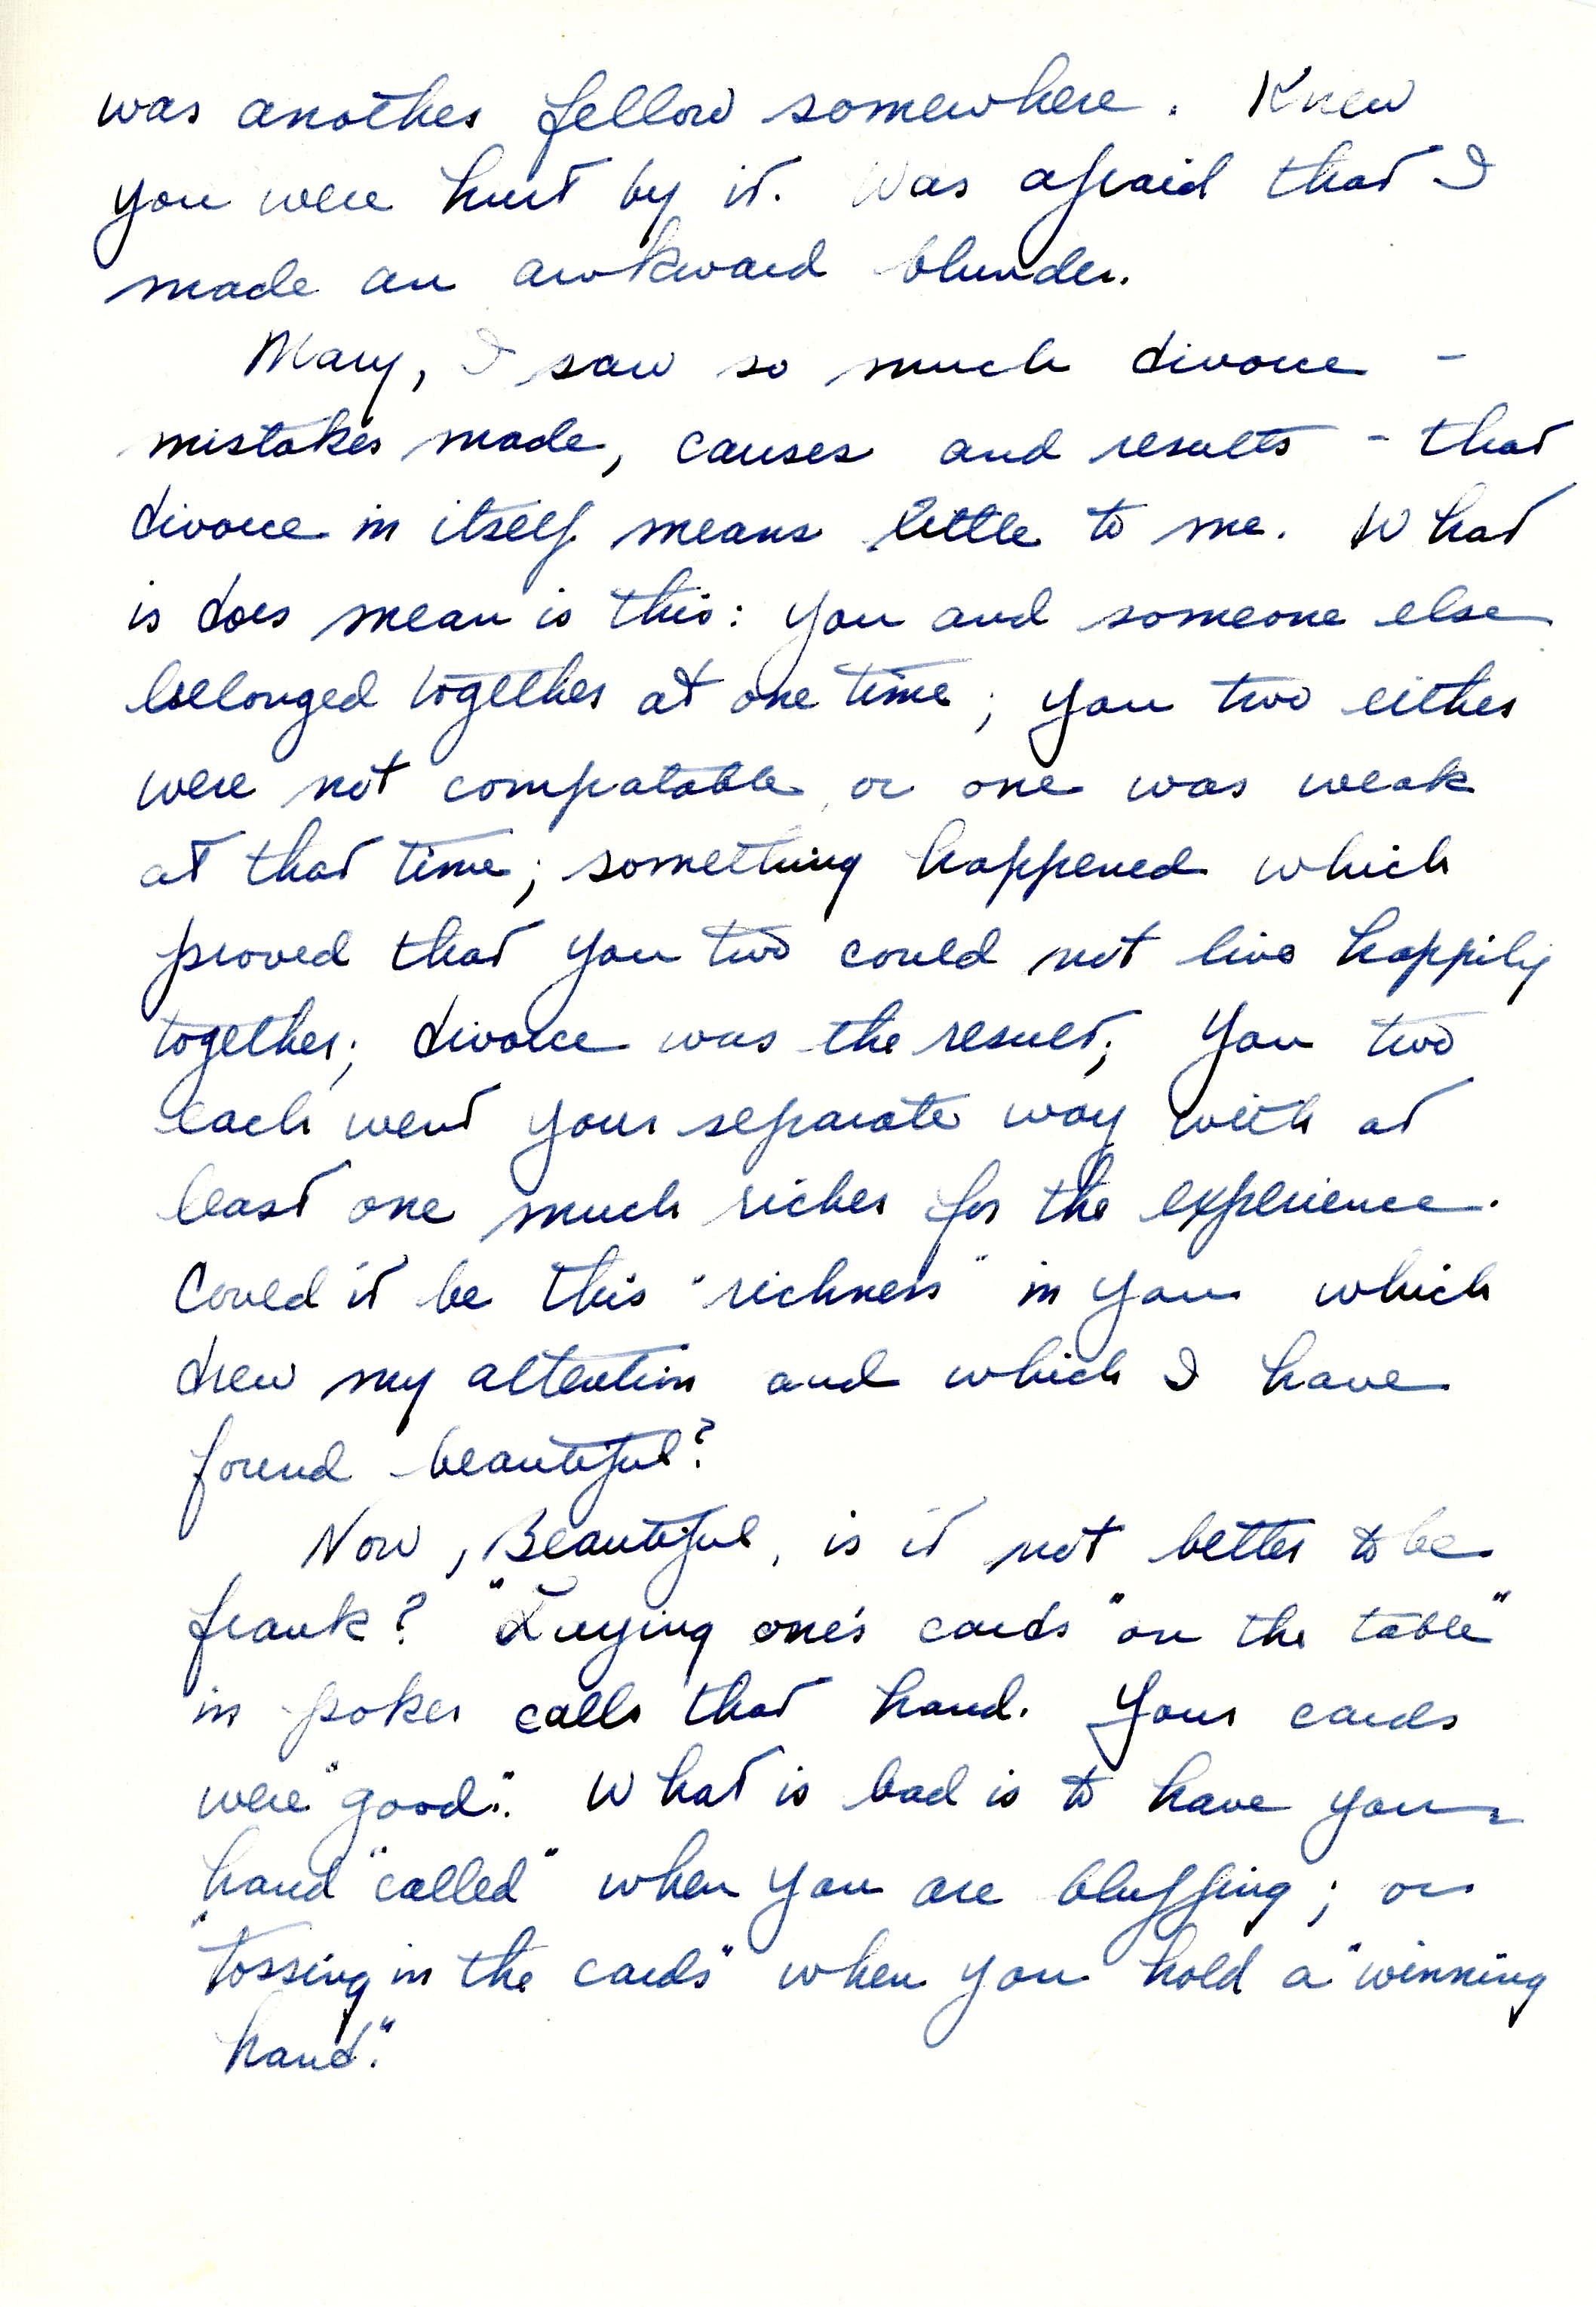 was another fellow somewhere. Knew
you were hurt by it. Was afraid that I
made an awkward blunder.
Mary, I saw so much divorce -
mistakes made, causes and results - that
divorce in itself means little to me. What
is does mean is this: you and someone else
belonged together at one time; you two either
were not compatable, or one was weak
at that time; something happened which
proved that you two could not live happily
together; divorce was the result; you two
each went your separate way with at
least one much richer for the experience.
Could it be this "richness" in you which
drew my attention and which I have
found beautiful?
Now, Beautiful, is it not better to be
frank? "Laying one's cards "on the table"
in poker calls that hand. Your cards
were "good". What is bad is to have your
hand "called" when you are bluffing; or
"tossing in the cards" when you hold a "winning
hand".